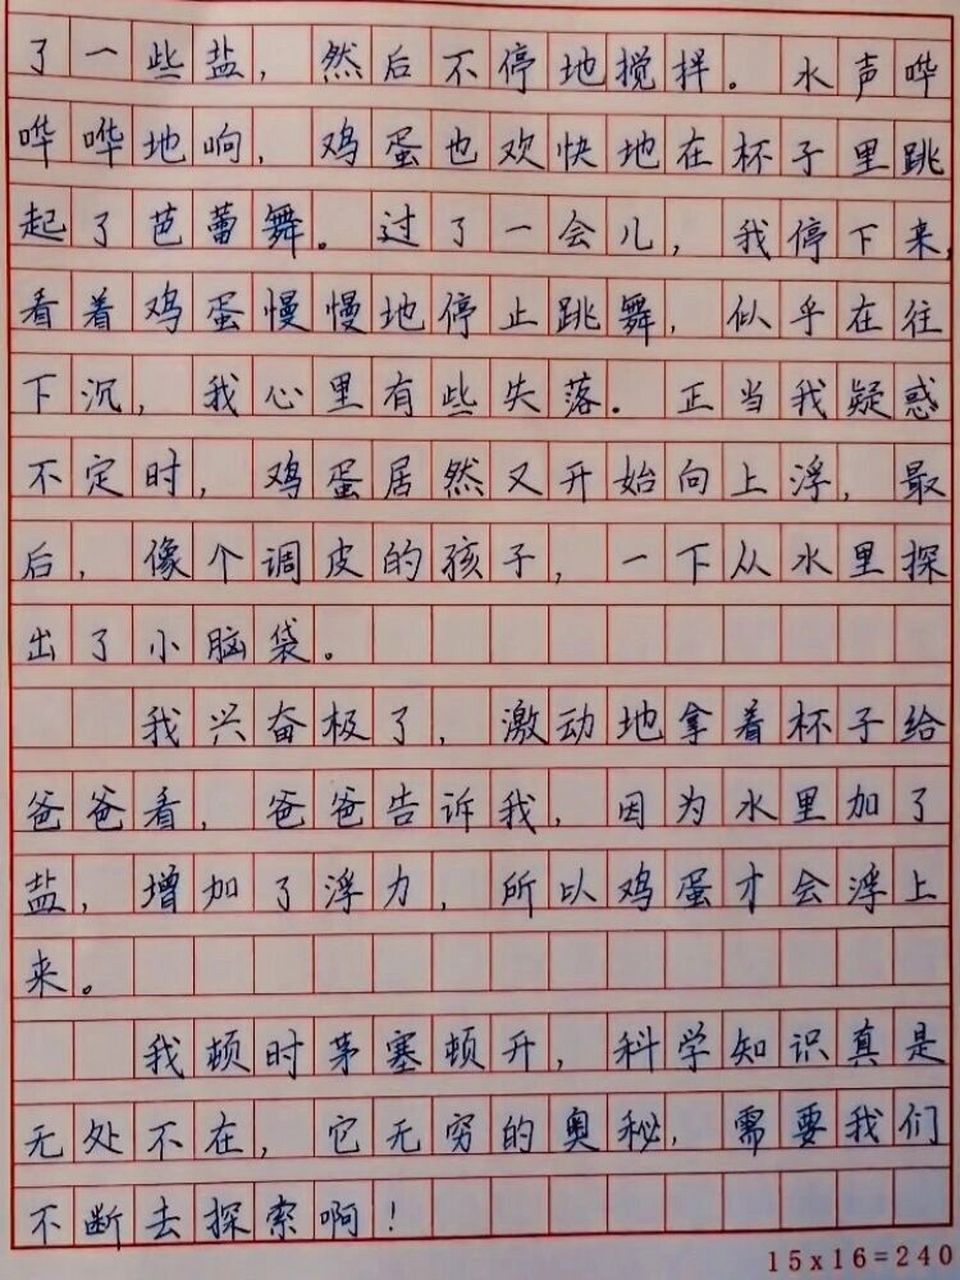 了一些盐，然后不停地搅拌。水声哗
哗哗地响，鸡蛋也欢快地在杯子里跳
起了芭蕾舞。过了一会儿，我停下来，
看着鸡蛋慢慢地停止跳舞，似乎在往
下沉，我心里有些失落。正当我疑惑
不定时，鸡蛋居然又开始向上浮，最
后，像个调皮的孩子，一下从水里探
出了小脑袋。
我兴奋极了，激动地拿着杯子给
爸爸看，爸爸告诉我，因为水里加了
盐，增加了浮力，所以鸡蛋才会浮上
来。
我顿时茅塞顿开，科学知识真是
无处不在，它无穷的奥秘，需要我们
不断去探索啊！
15x16=240